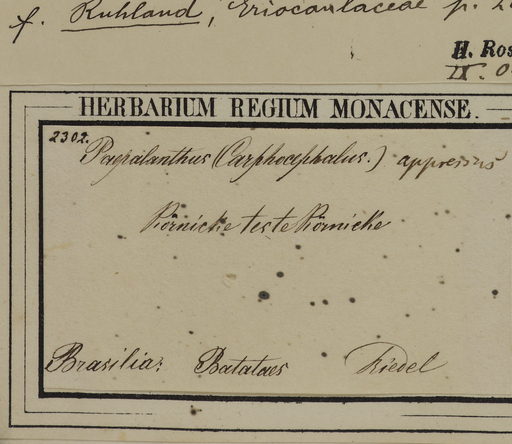 f. Ruhland, Eriocaulaceae p. 2
H. Ros
IX. 0
HERBARIUM REGIUM MONACENSE.
2302.
Papalanthus (Carphocephalus.) appressus
Körnicke teste Körnicke
Brasilia: Batataes Riedel